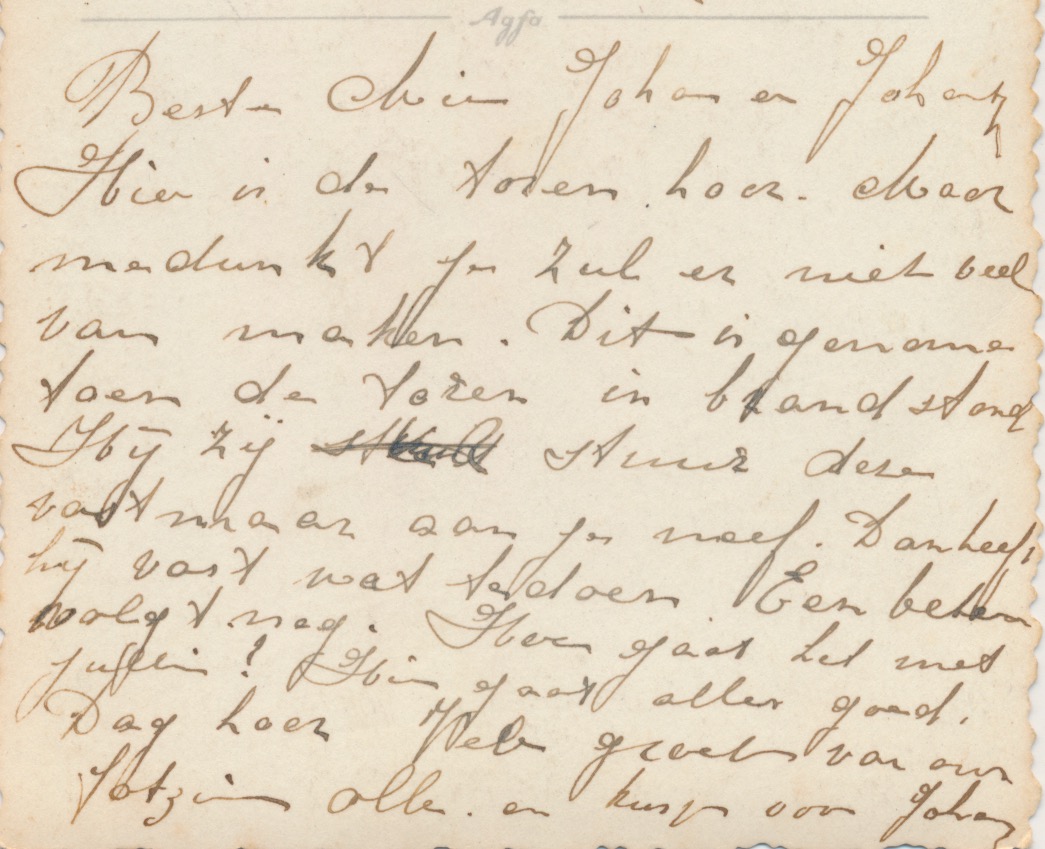 Agfa
Beste Mien Johan en Johan
Hier is de toren hoor. Maar
medunkt je zul er niet veel
van maken. Dit is genome
toen de toren in brand stond
Hij zij stuur deze
vast maar aan je neef. Dan heeft
hij vast wat te doen. Een betere
volgt nog. Hoe gaat het met
jullie? Hier gaat alles goed.
Dag hoor Vele groeten van ons
Totziens alle. en kusje voor Johan